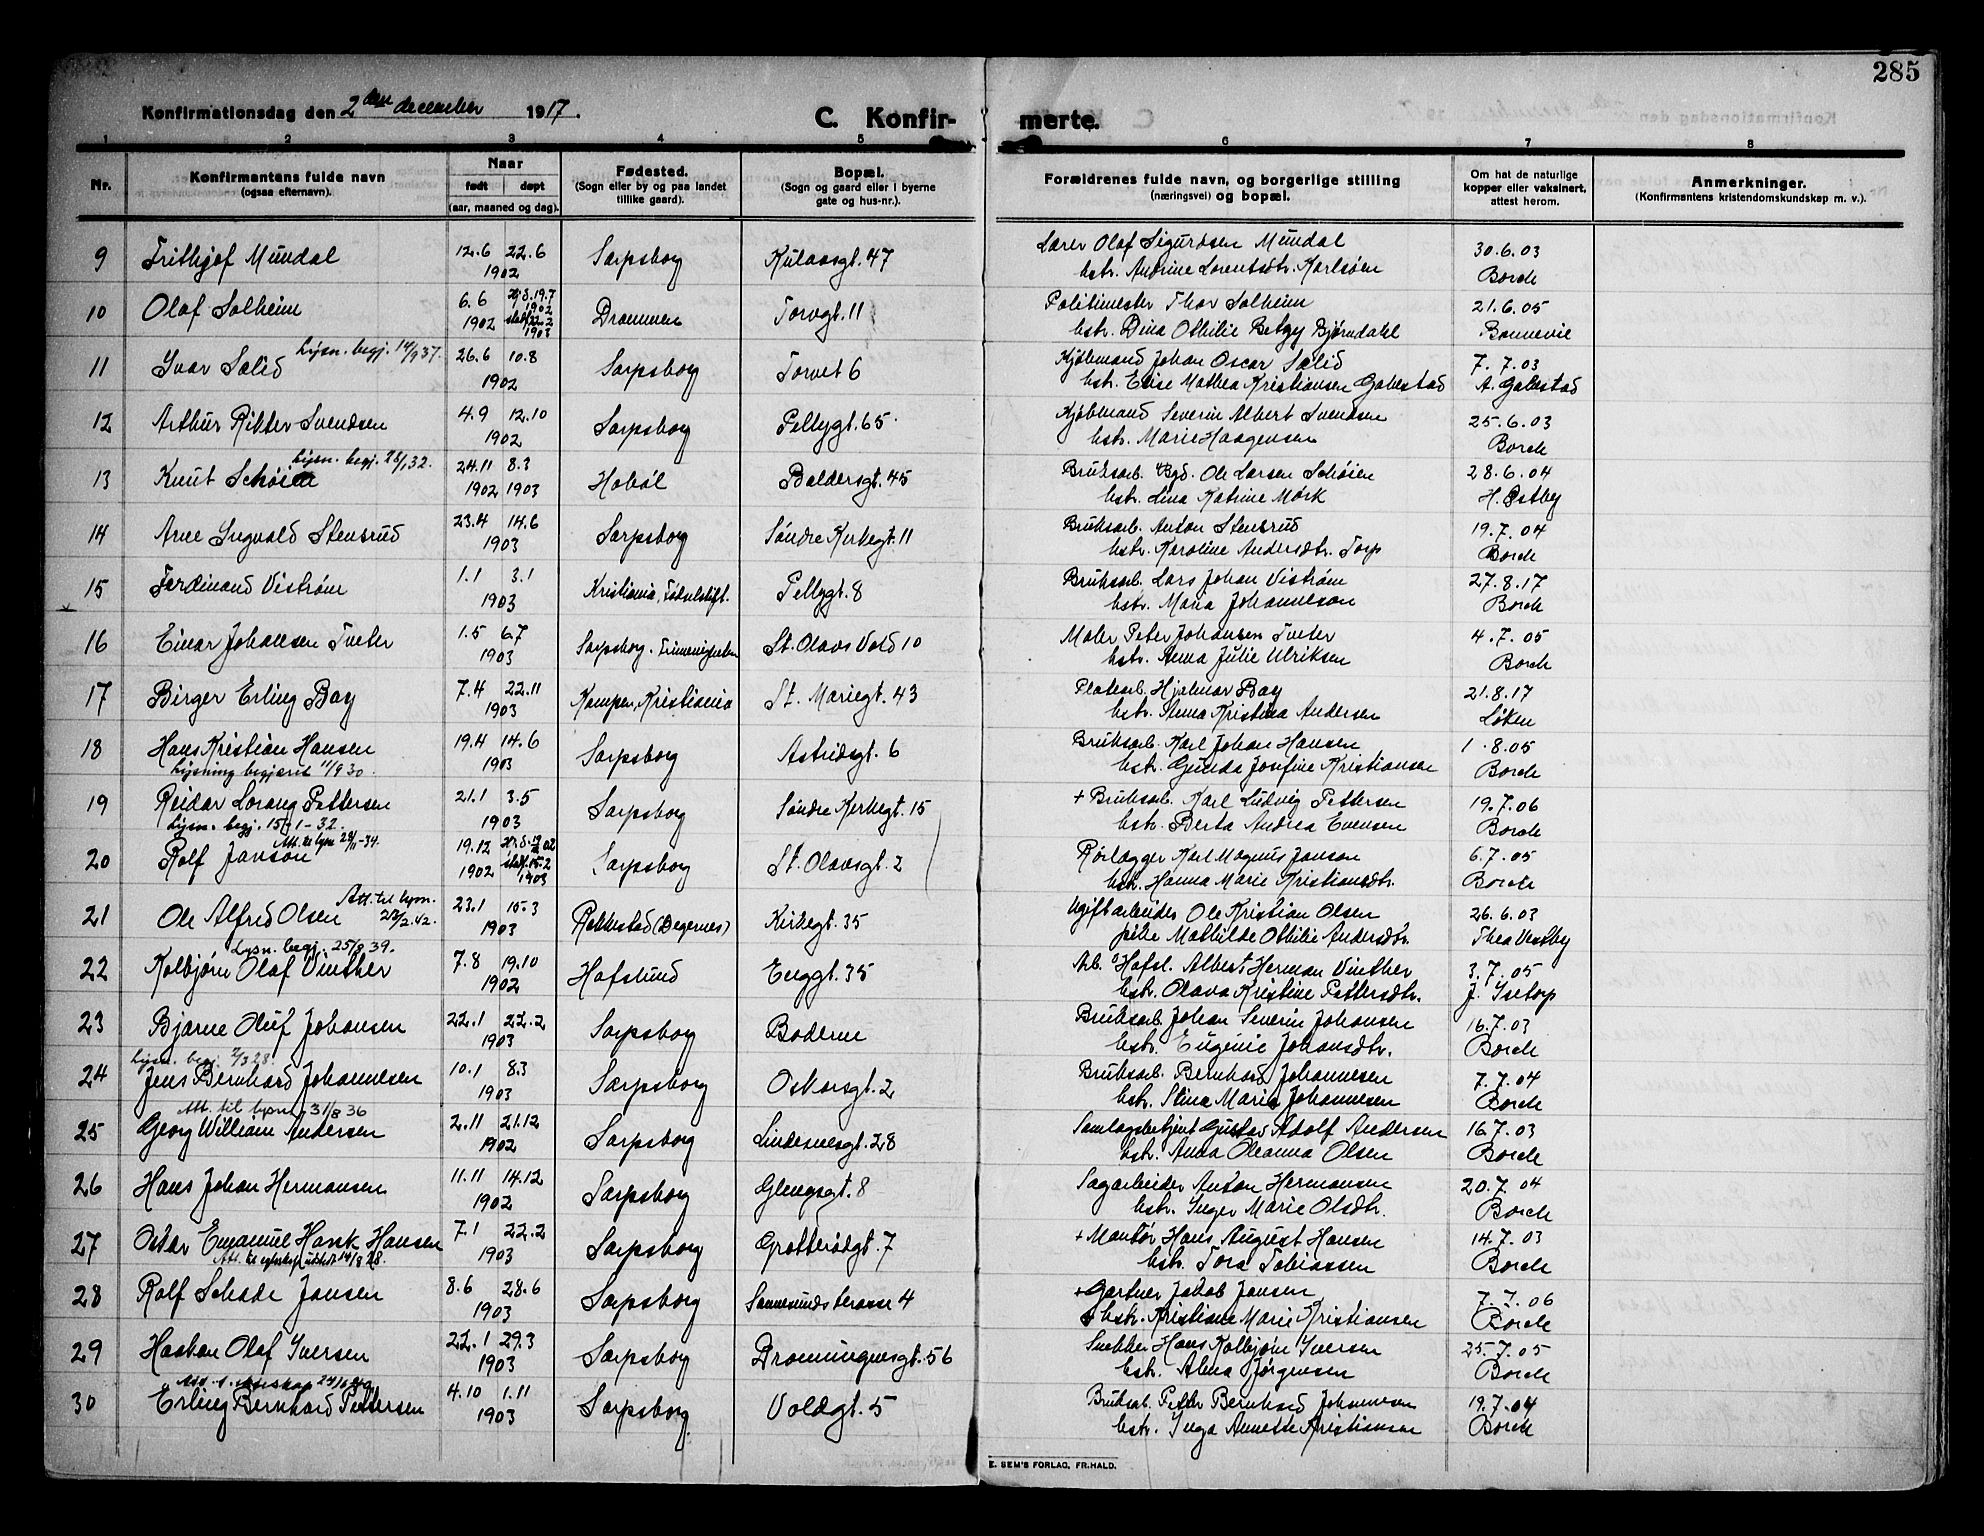 285
Konfirmationsdag den 2den december 1917.
C. Konfirmerte.
1 2 3 4 5 6 7 8
Nr. Konfirmantens fulde navn (ogsaa efternavn). Naar født døpt (aar, maaned og dag). Fødested. (Sogn eller by og paa landet tillike gaard). Bopæl. (Sogn og gaard eller i byerne gate og hus-nr.). Forældrenes fulde navn, og borgerlige stilling (næringsvei) og bopæl. Om hat de naturlige kopper eller vaksinert, attest herom. Anmerkninger. (Konfirmantens kristendomskundskap m. v.).
9 Frithjof Mundal 12.6 22.6 Sarpsborg Kulaasgt. 47 Lærer Olaf Sigurdsen Mundal 30.6.03
1902 hstr. Andrine Lorentsdtr. Karlsøen Borch
10 Olaf Solheim 6.6 hj.d. 19.7 1902 Drammen Torvgt. 11 Politimester Thor Solheim 21.6.05
1902 stadf. 22.2 1903 hstr. Dina Othilie Betzy Bjørndahl Bonnevie
11 Ivar Sælid Lysn. begj. 14/9 37. 26.6 10.8 Sarpsborg Torvet 6 Kjøbmand Johan Oscar Sælid 7.7.03
1902 hstr. Elise Mathea Kristiansen Gabestad A. Gabestad
12 Arthur Rikter Svendsen 4.9 12.10 Sarpsborg Pellygt. 65. Kjøbmand Severin Albert Svendsen 25.6.03
1902 hstr. Marie Haagensen Borch
Lysn. begj. 26/1 32.
13 Knut Schøien 24.11 8.3 Hobøl Baldersgt. 45 Bruksarb. Ole Larsen Schøien 28.6.04
1902 1903 hstr. Lina Katrine Mørk H. Østby
14 Arne Ingvald Stensrud 23.4 14.6 Sarpsborg Søndre Kirkegt. 11 Bruksarb. Anton Stensrud 19.7.04
1903 hstr. Karoline Andersdtr. Torp Borch
15 Ferdinand Vistrøm 1.1 3.1 Kristiania, Fødselstift. Pellygt. 8 Bruksarb. Lars Johan Vistrøm 27.8.17
1903 hstr. Maria Johanneson Borch
16 Einar Johansen Tveter 1.5 6.7 Sarpsborg. St. Olavs Vold 10 Maler Peter Johansen Tveter 4.7.05
1903 hstr. Anna Julie Ulriksen Borch
17 Birger Erling Bay 7.4 22.11 Kampen, Kristiania St. Mariegt. 43 Platearb. Hjalmar Bay 21.8.17
1903 hstr. Anna Kristina Andersen Løken
18 Hans Kristian Hansen 19.4 14.6 Sarpsborg Astridsgt. 6 Bruksarb. Karl Johan Hansen 1.8.05
Lysning begjæret 11/9 30. 1903 hstr. Gunda Josefine Kristiansen Borch
19 Reidar Lorang Pettersen 21.1 3.5 Sarpsborg Søndre Kirkegt. 15 + Bruksarb. Karl Ludvig Pettersen 19.7.06
Lysn. begj. 15-1-32. 1903 hstr. Berta Andrea Evensen Borch
Att. til lysn 28/11-34.
20 Rolf Janson 19.12 Sarpsborg St. Olavsgt. 2 Rørlægger Karl Magnus Janson 6.7.05
1902 stadf. 15.2 1903 hstr. Hanna Marie Kristiansdtr. Borch
Att. til lysn.
21 Ole Alfred Olsen 23/2.42. 23.1 15.3 Rakkestad (Degernes) Kirkegt. 35 Ugift arbeider Ole Kristian Olsen 26.6.03
1903 pike Mathilde Othilie Andersdtr. Thea Vestby
Lysn. begj. 25/8 39.
22 Kolbjørn Olaf Vinther 7.8 19.10 Hafslund Enggt. 35 Arb. Hafsl. Albert Herman Vinther 3.7.05
1902 hstr. Olava Kristine Pettersdtr. J. Istorp
23 Bjarne Oluf Johansen 22.1 22.2 Sarpsborg Boderne Bruksarb. Johan Severin Johansen 16.7.03
1903 hstr. Eugenie Johansdtr. Borch
Lysn. begj. 2/3 28.
24 Jens Bernhard Johannesen 10.1 8.3 Sarpsborg Oskarsgt. 2 Bruksarb. Bernhard Johannesen 7.7.04
1903 hstr. Stina Maria Johannesen Borch
Att. til lysn. 31/8 36
25 Georg William Andersen 2.11 21.12 Sarpsborg Lindesnesgt. 28 Samlagsbetjent Gustav Adolf Andersen 16.7.03
1902 hstr. Anna Oleanna Olsen Borch
26 Hans Johan Hermansen 11.11 14.12 Sarpsborg Glengsgt. 8 Sagarbeider Anton Hermansen 20.7.04
1902 hstr. Inger Marie Olsdtr. Borch
27 Oskar Emanuel Hansen 7.1 22.2 Sarpsborg Grotterødgt. 7 + Montør Hans August Hansen 14.7.03
Att. til utstedt 14/8 28. 1903 hstr. Tora Tobiassen Borch
28 Rolf Schade Jansen 8.6 28.6 Sarpsborg Sannesunds terasse 4 + Gartner Jakob Jansen 7.7.06
1903 + hstr. Kristiane Marie Kristiansen Borch
29 Haakon Olaf Iversen 22.1 29.3 Sarpsborg Dronningensgt. 56 Snekker Hans Kolbjørn Iversen 25.7.05
1903 hstr. Alma Jørgensen Borch
30 Erling Bernhard Pettersen 4.10 1.11 Sarpsborg. Voldgt. 5 Bruksarb. Petter Bernhard Johannesen 19.7.04
1903 hstr. Inga Annette Kristiansen Borch
E. SEM'S FORLAG, FR.HALD.